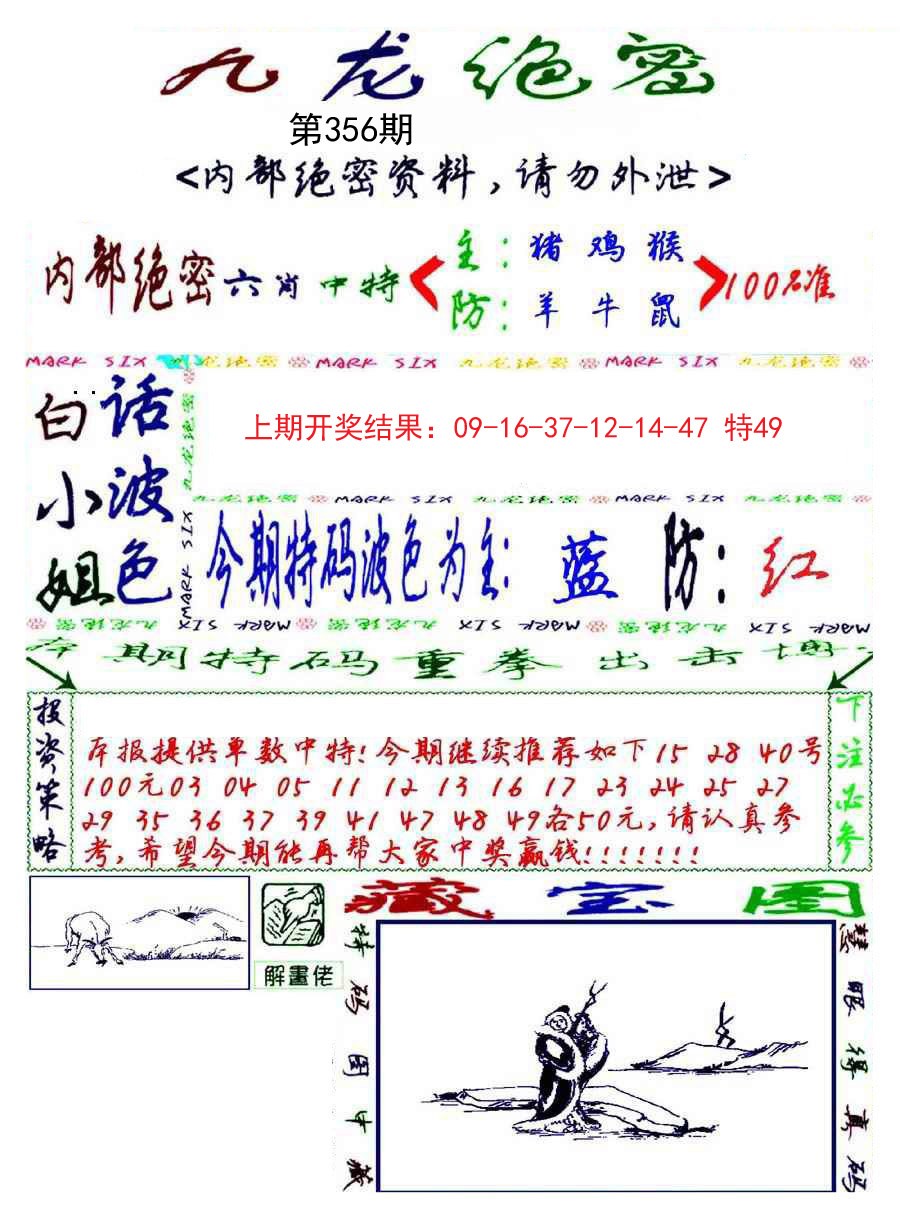 九龙绝密
第356期
<内部绝密资料,请勿外泄>
内部绝密六肖中特
主:猪鸡猴
防:羊牛鼠
100%准
MARK SIX 九龙绝密 MARK SIX 九龙绝密 MARK SIX 九龙绝密
白小姐
话波色
九龙绝密
MARK SIX
上期开奖结果：09-16-37-12-14-47 特49
九龙绝密 MARK SIX 九龙绝密 MARK SIX 九龙绝密
今期特码波色为主: 蓝 防: 红
九龙绝密 MARK SIX MARK 九龙绝密 SIX MARK 九龙绝密 SIX MARK
本期特码重拳出击
投资策略
本报提供单数中特!今期继续推荐如下15 28 40号
100元03 04 05 11 12 13 16 17 23 24 25 27
29 35 36 37 39 41 47 48 49各50元,请认真参
考,希望今期能再帮大家中奖赢钱!!!!!!!
下注必参
解畫佬
藏宝图
特码图中藏
慧眼得真码